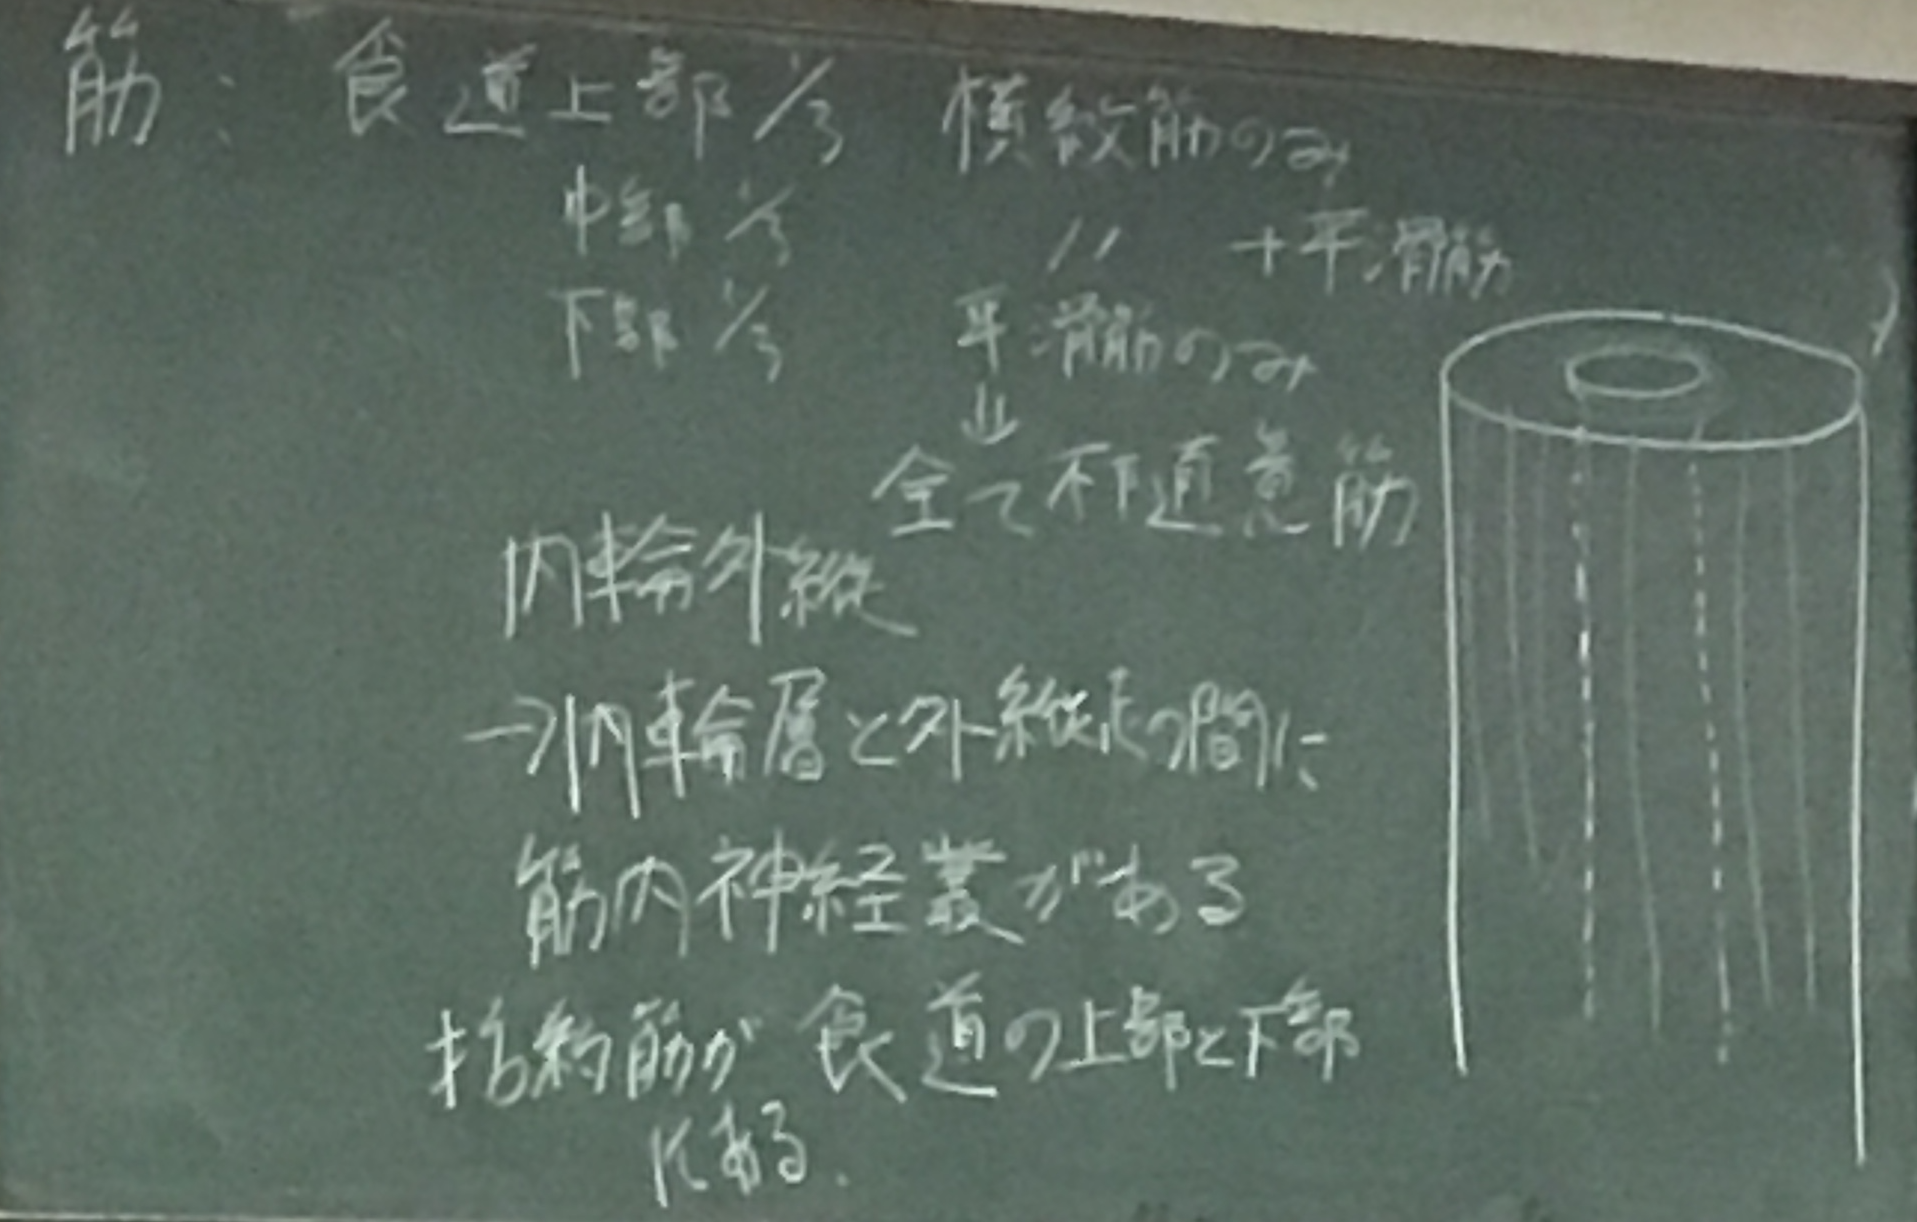 筋: 食道上部 1/3 横紋筋のみ
中部 1/3 〃 +平滑筋
下部 1/3 平滑筋のみ
⇓
全て不随意筋
内輪外縦
→内輪層と外縦走の間に
筋内神経叢がある
括約筋が食道の上部と下部
にある.